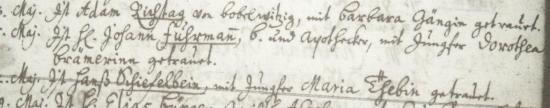 Maj. Ist Adam Ruhstag von bobelwitzig, mit barbara Gängin getrauet.
Maj. Ist H. Johann Fuhrmann, b. und Apothecker, mit Jungfer Dorothea
brämerinn getrauet.
Maj. Ist Hanß Schiefelbein, mit Jungfer Maria Thebin getrauet.
Maj. Ist H. Elias